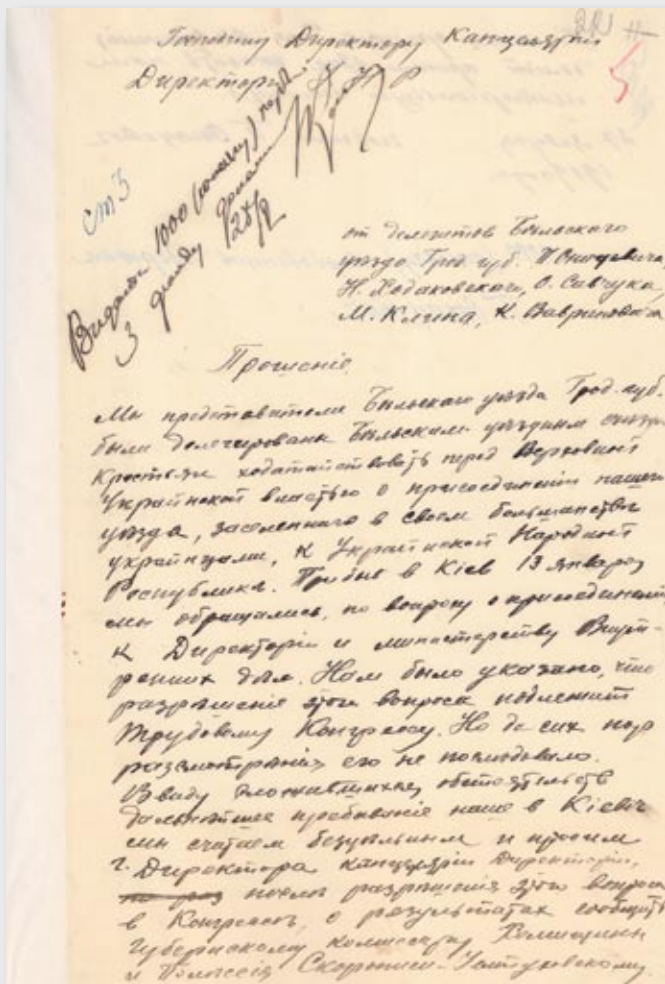 Господину Директору Канцелярии
Директории У Н Р
ст 3
Видати 1000 (тисячу)
3 фонду
28/I
от делегатов Бѣльского
уѣзда Грод. губ.
Н. Ходаковского, О. Савчука,
М. Клина, К. Вавриновича
Прошеніе
Мы представители Бѣльскаго уѣзда Грод. губ.
были делегированы Бѣльским уѣздным съѣздом
Крестьян ходатайствовать перед Верховной
Украинской властью о присоединеніи нашего
уѣзда, заселенного в своем большинствѣ
украинцами, к Украинской Народной
Республикѣ. Прибыв в Кіев 13 января
мы обращались, по вопросу о присоединеніи
к Директоріи и министерству Внут-
ренних дѣл. Нам было указано, что
разрѣшеніе этого вопроса подлежит
Трудовому Конгрессу. Но до сих пор
разсмотрѣнія его не послѣдовало.
Ввиду сложившихся обстоятельств
дальнѣйшее пребываніе наше в Кіевѣ
мы считаем безцѣльным и просим
г. Директора канцелярии Директоріи,
послѣ разрѣшенія этого вопроса
в Конгрессѣ, о результатах сообщить
Губернскому комиссару Холмщины
и Полѣссія Скоропис-Іолтуховскому.